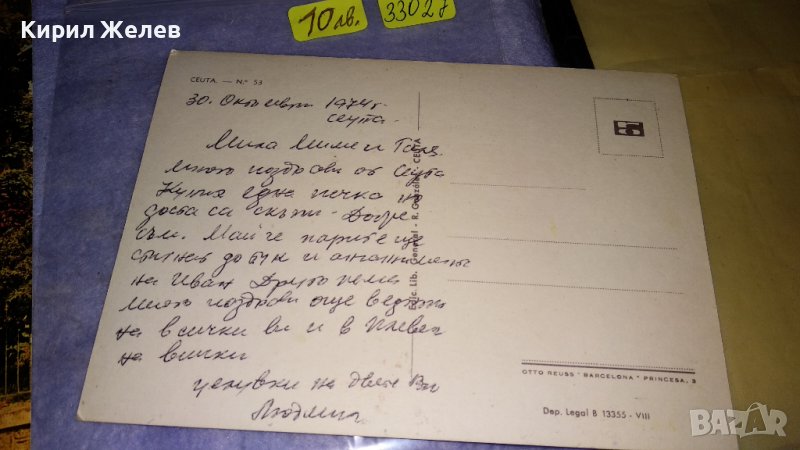 Кирил Желев
10 лв.
33027
CEUTA. — N.º 53
30. Октомври 1974 г.
Сеута.
Мила Миме и Галя
много поздрави от Сеута
Купих една печка но
доста са скъпи. Добре
съм. Май че парите ще
стигнат до тук и
на Иван Друго няма
много поздрави още веднъж
на всички ви и в Плевен
на всички
целувки на двете Ви
Людмила
Exclc. Lib. General - R. González - CEUTA
OTTO REUSS "BARCELONA" PRINCESA, 3
Dep. Legal B 13355 - VIII
BAZAR